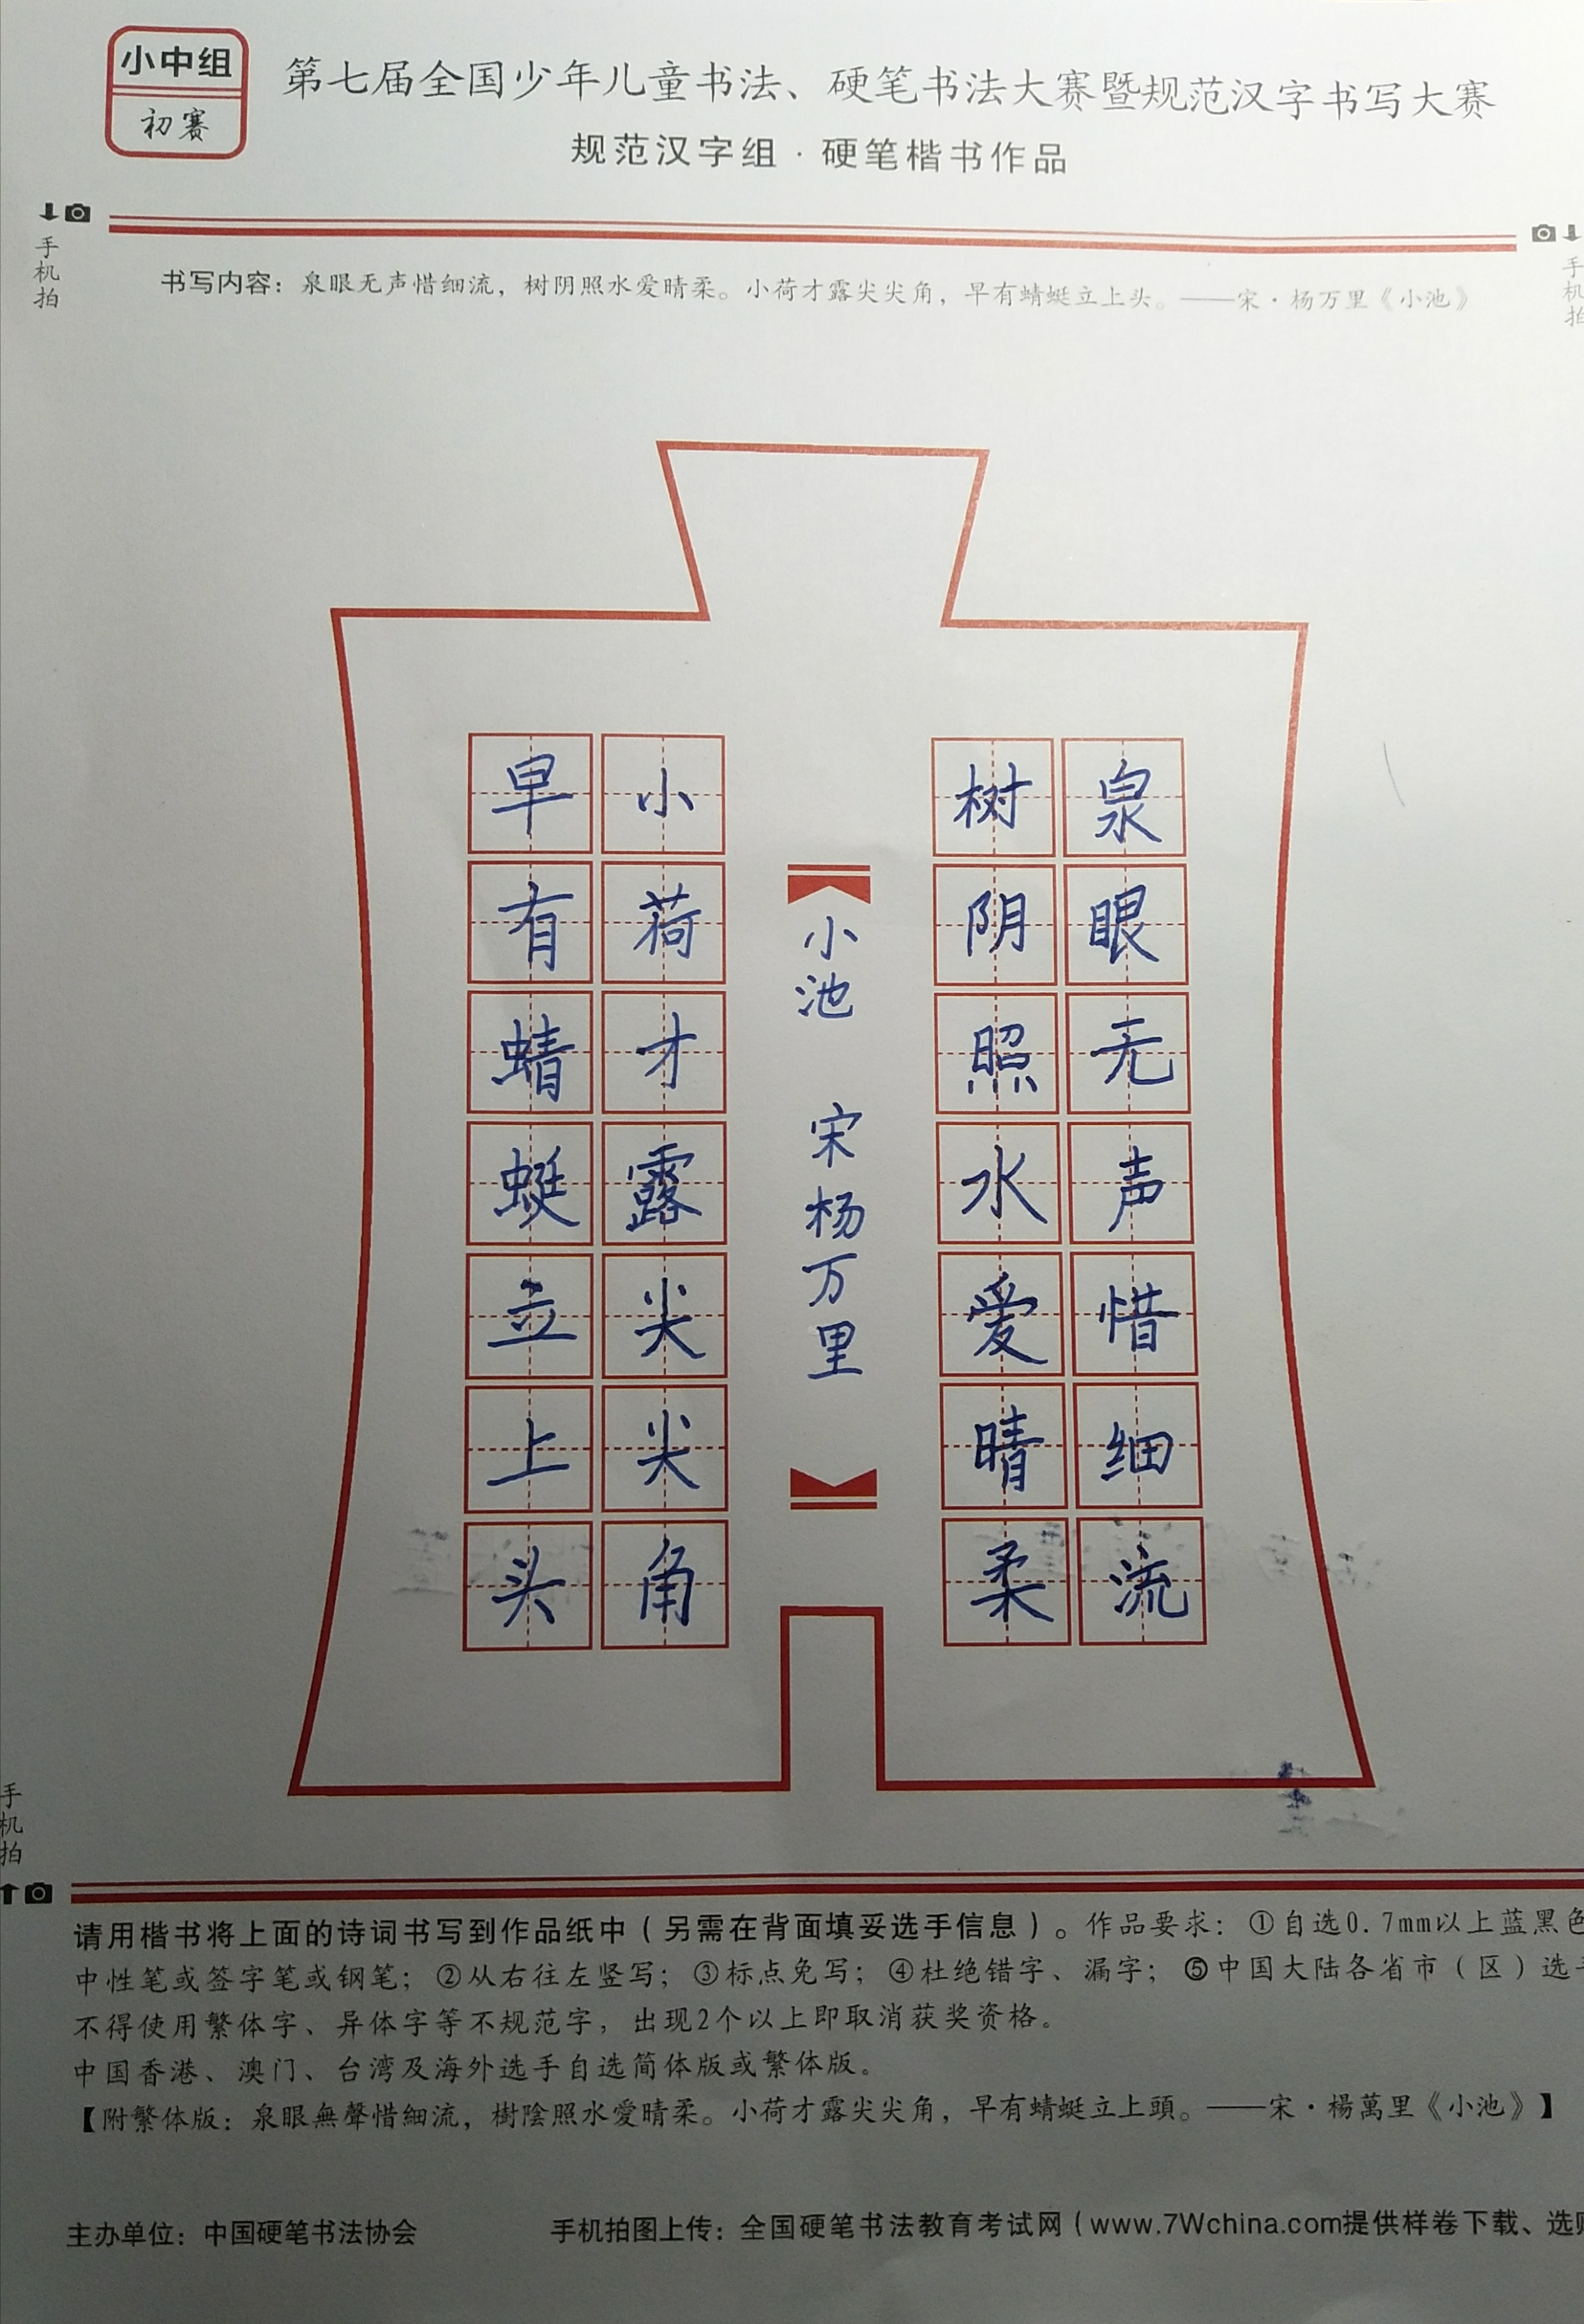 小中组
初赛
第七届全国少年儿童书法、硬笔书法大赛暨规范汉字书写大赛
规范汉字组·硬笔楷书作品
手机拍
手机拍
书写内容：泉眼无声惜细流，树阴照水爱晴柔。小荷才露尖尖角，早有蜻蜓立上头。——宋·杨万里《小池》
泉眼无声惜细流
树阴照水爱晴柔
小池 宋杨万里
小荷才露尖尖角
早有蜻蜓立上头
手机拍
请用楷书将上面的诗词书写到作品纸中（另需在背面填妥选手信息）。作品要求：①自选0.7mm以上蓝黑色
中性笔或签字笔或钢笔；②从右往左竖写；③标点免写；④杜绝错字、漏字；⑤中国大陆各省市（区）选手
不得使用繁体字、异体字等不规范字，出现2个以上即取消获奖资格。
中国香港、澳门、台湾及海外选手自选简体版或繁体版。
【附繁体版：泉眼無聲惜細流，樹陰照水愛晴柔。小荷才露尖尖角，早有蜻蜓立上頭。——宋·楊萬里《小池》】
主办单位：中国硬笔书法协会
手机拍图上传：全国硬笔书法教育考试网（www.7Wchina.com提供样卷下载、选